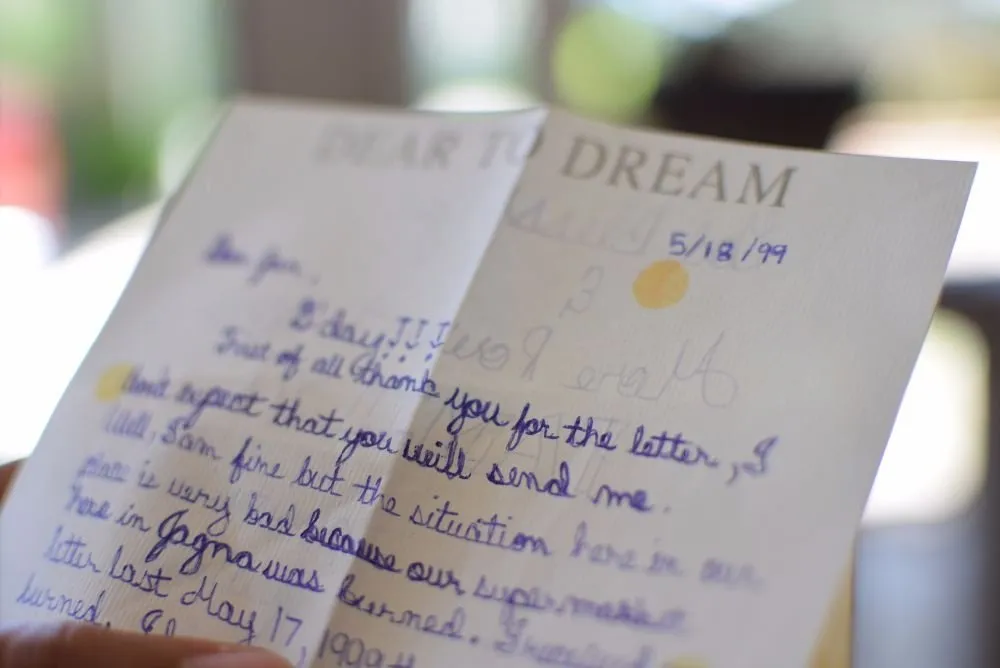 DEAR TO DREAM
5/18/99
G'day!!!
First of all thank you for the letter, I
don't expect that you will send me.
Well, I am fine but the situation here in our
place is very bad because our supermarket
here in Jagna was burned. I received
letter last May 17, 1999
burned.